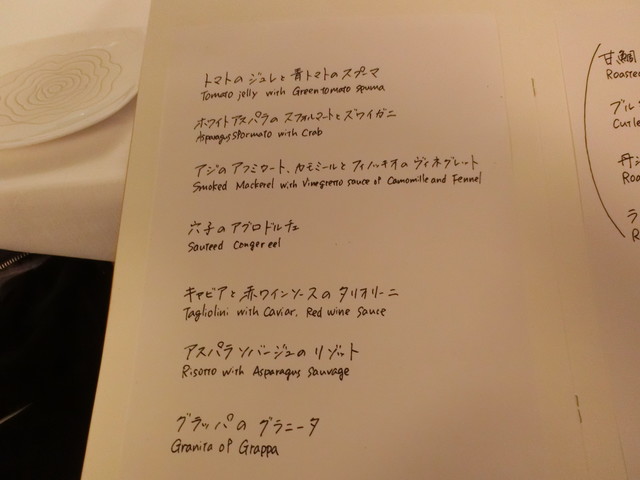 トマトのジュレと青トマトのスプーマ
Tomato jelly with Green tomato spuma
ホワイトアスパラのスフォルマートとズワイガニ
Asparagus Sformato with Crab
アジのアフミカート、カモミールとフィノッキオのヴィネグレット
Smoked Mackerel with Vinegretto sauce of Camomille and Fennel
穴子のアグロドルチェ
Sauteed Conger eel
キャビアと赤ワインソースのタリオリーニ
Tagliolini with Caviar, Red wine Sauce
アスパラソバージュのリゾット
Risotto with Asparagus Sauvage
グラッパのグラニータ
Granita of Grappa
甘鯛
Roasted
ブル
Cutle
丹
Roa
ラ
R